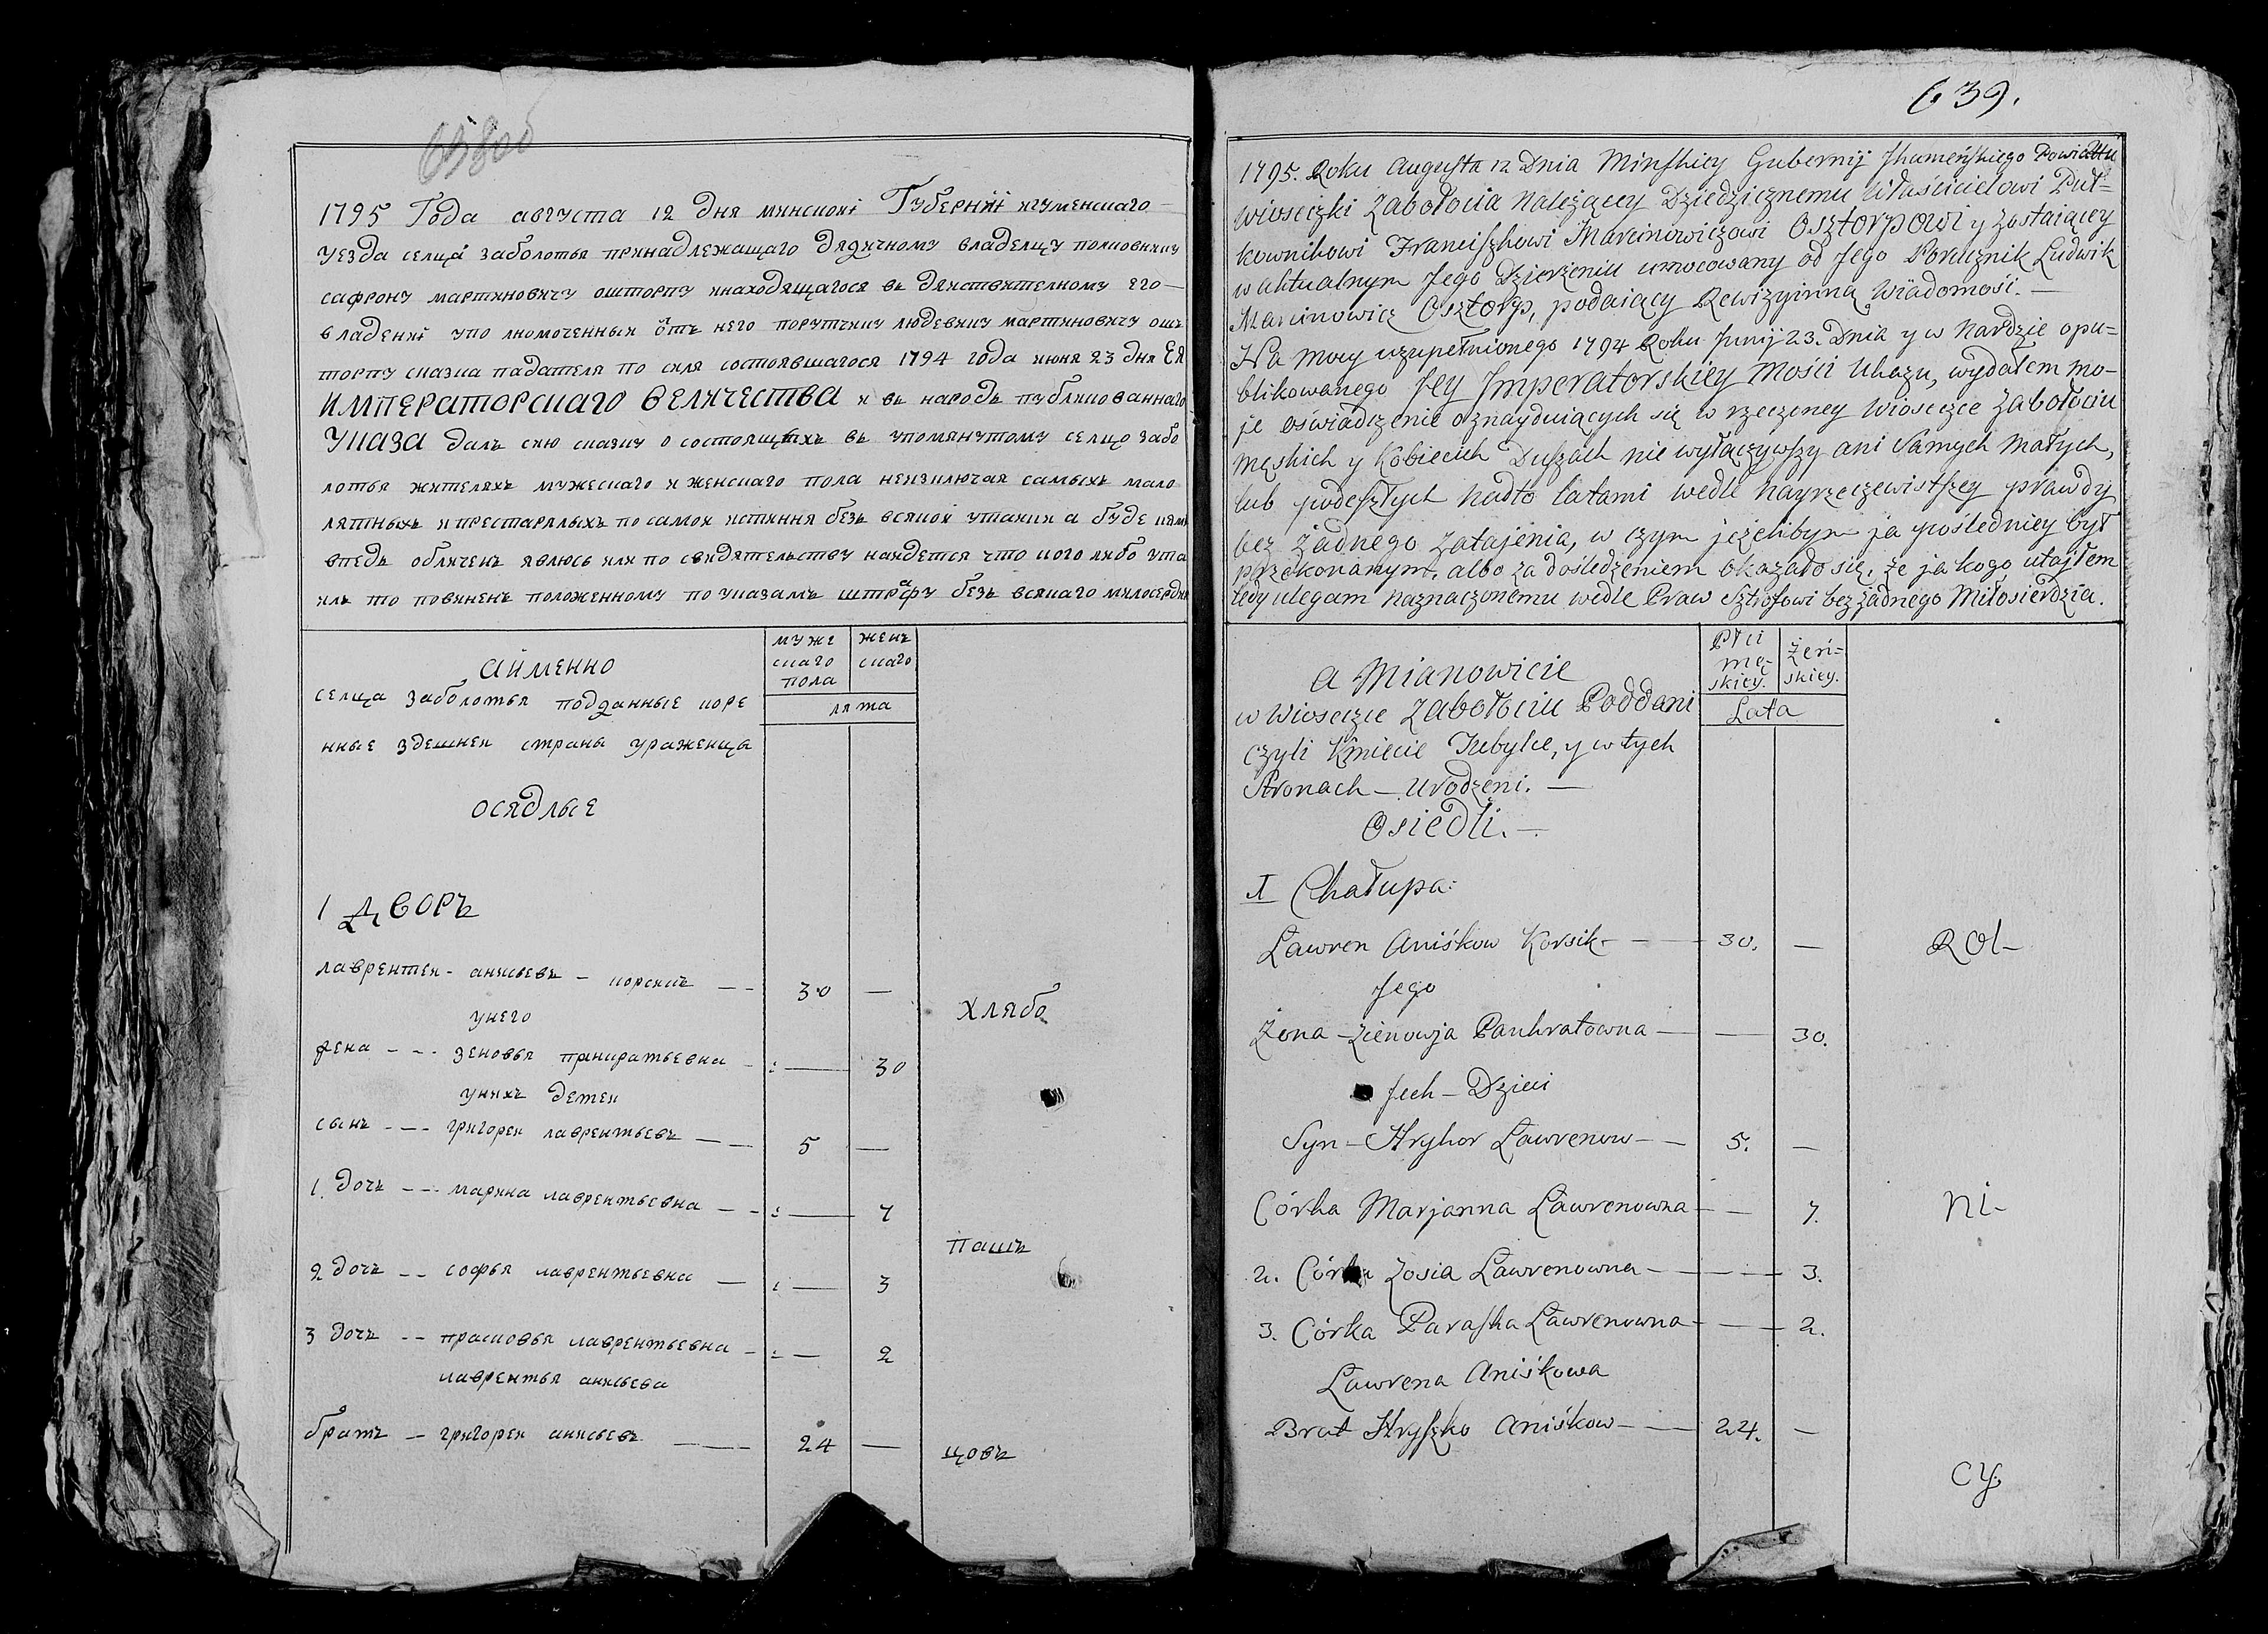 638об
1795 Года августа 12 дня минскоі Губерніи игуменскаго
уезда селца заболотья принадлежащаго дядичному владелцу полковнику
сафрону мартиновичу ошторпу инаходящагося въ дяиствителному его
владениі уполномоченныи отъ него порутчику людевику мартиновичу ош
торпу сказка падателя по силя состоявшагося 1794 года июня 23 дня Ея
ИМПЕРАТОРСКАГО ВЕЛИЧЕСТВА и въ народъ публикованнаго
Указа далъ сию сказку о состоящихъ въ упомянутому селцо забо
лотья жителяхъ мужескаго и женскаго пола неизключая самыхъ мало
лятныхъ и престарялыхъ по самои истиння безъ всякои утаики а буде иям
впедъ обличенъ явлюсь или по свидятельству наидется что кого либо ута
илъ то повиненъ положенному по указамъ штрафу безъ всякаго милосердия
аименно
селца заболотья подданные коре
нные здешнеи страны ураженцы
осядлые
муже
скаго
пола
женъ
скаго
лята
1 ДВОРЪ
лаврентеи - анисьевъ - корсикъ 30 —
унего
жена - - - зеновья панкратьевна : — 30
унихъ детеи
сынъ - - - григореи лаврентьевъ 5 —
1. дочь - - - марина лаврентьевна : — 7
2 дочь - - софья лаврентьевна : — 3
3 дочь - - прасковья лаврентьевна : — 2
лаврентья анисьева
братъ - григореи анисьевъ 24 —
хлябо
пашъ
цовъ
639.
1795. Roku Augusta 12 Dnia Minskiey Gubernij Jhumeńskiego Powiattu
wioseczki Zabołocia Należącey Dziedzicznemu Właścicielowi Puł=
kownikowi Franciszkowi Marcinowiczowi Osztorpowi y zostaiącey
w aktualnym Jego Dzierżeniu umocowany od Jego Porucznik Ludwik
Marcinowicz Osztorp, podaiący Rewizyinną Wiadomość. —
Na mocy uzupełnionego 1794 Roku Junij 23. Dnia y w Nardzie opu=
blikowanego Jey Jmperatorskiey Mości Ukazu, wydałem mo-
je oświadczenie oznayduiących się w rzeczoney Wioseczce Zabołociu
męskich y Kobiecich Duszach nie wyłączywszy ani Samych Małych,
lub podeszłych nadto latami wedle nayrzeczewistszey prawdy
bez żadnego zatajenia, w czym jeżelibym ja poślednicy był
przekonanym, albo za dośledzeniem okazało się, że ja kogo utajłem
tedy ulegam naznaczonemu wedle Praw Sztrofowi bez żadnego Miłosierdzia.
A Mianowicie
w Wioseczce Zabołociu Poddani
czyli Kmiecie Tubylce, y w tych
Stronach — Urodzeni. —
Osiedli. —
Płci
mę-
skiey.
żeń=
skiey.
Lata
1 Chałupa:
Lawren Aniśkow Korsik 30. —
Jego
Żona - Zienowja Pankratowna — 30.
Jech - Dzieci
Syn - Hryhor Lawrenow 5. —
Córka Marjanna Lawrenowna — 7.
2. Córka Zosia Lawrenowna — 3.
3. Córka Paraska Lawrenowna — 2.
Lawrena Aniśkowa
Brat Hryszko Aniśkow 24. —
Rol-
ni-
cy.